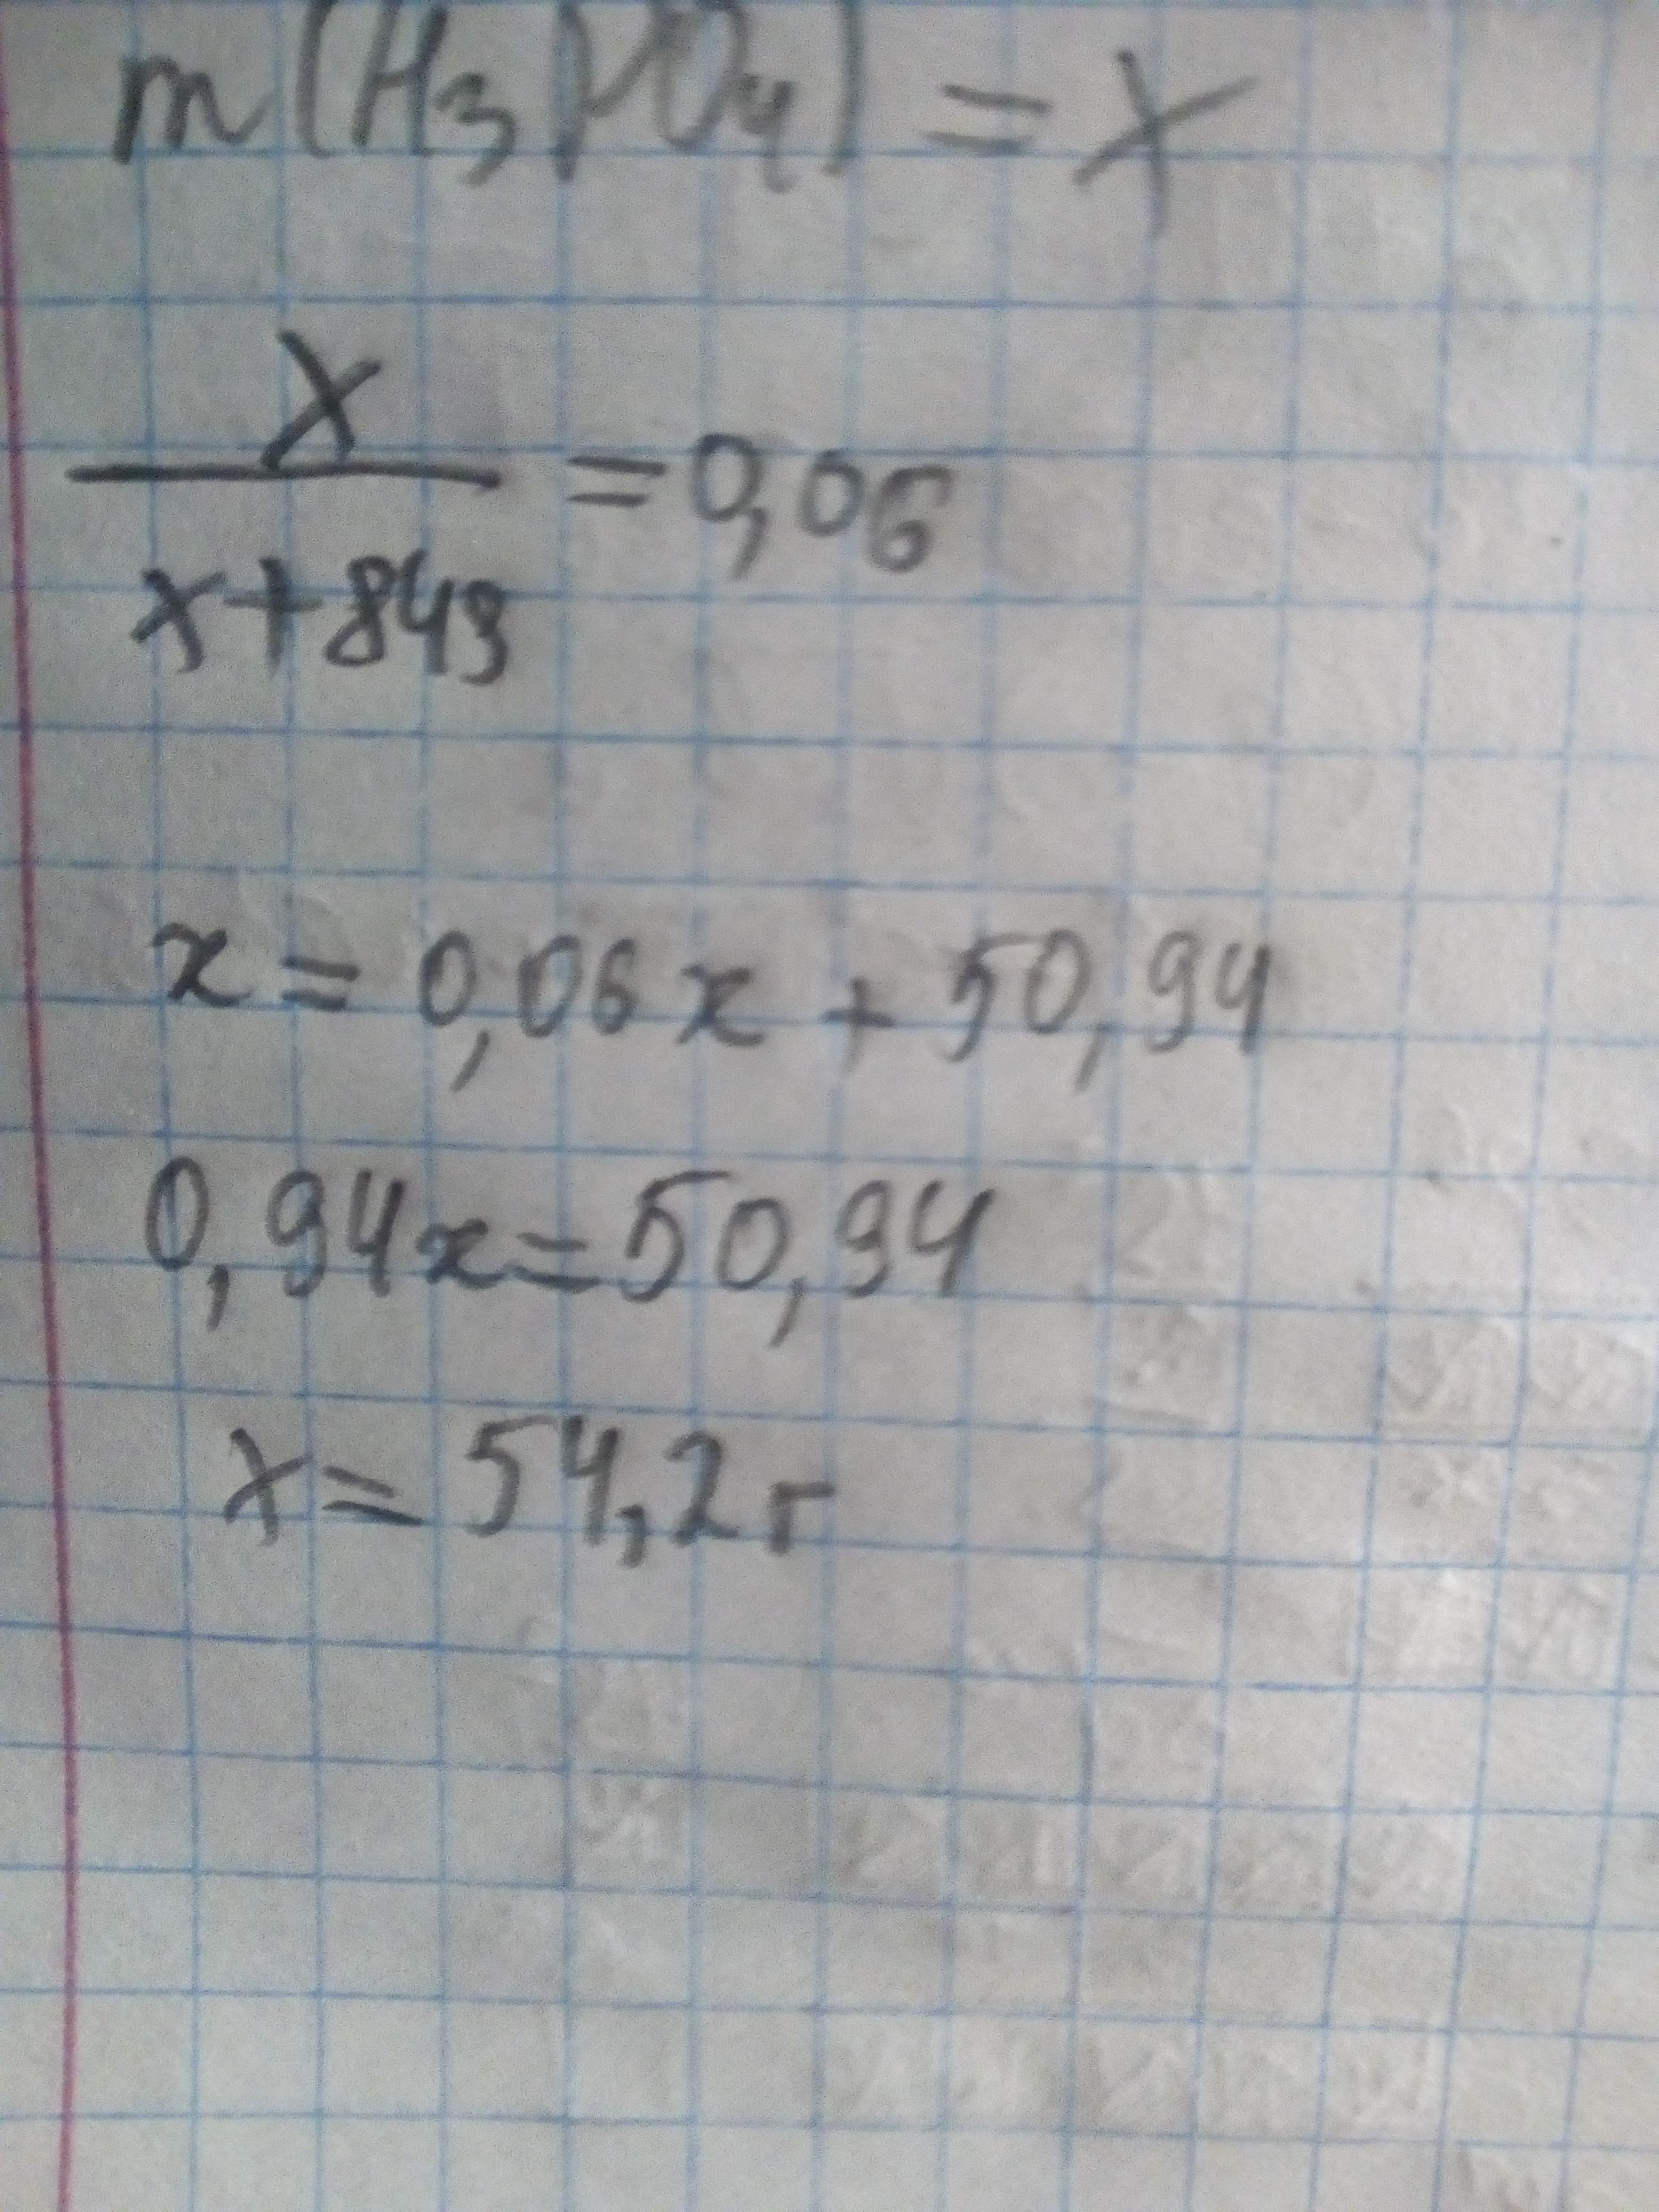 m(H₃PO₄) = x
x
x+849
=0,06
x = 0,06x + 50,94
0,94x=50,94
x= 54,2г